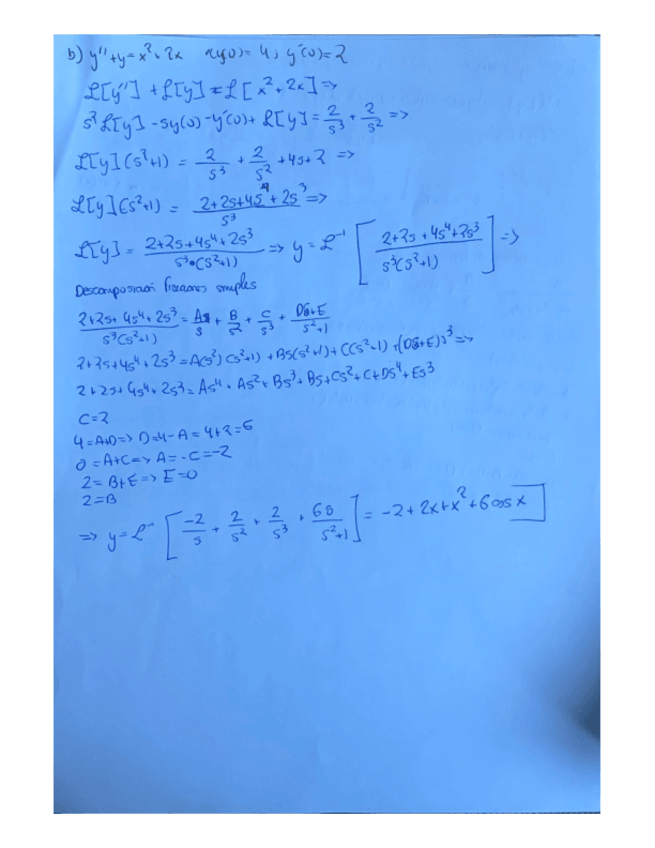 b) y''+y=x²+2x y(0)=4; y'(0)=2
ℒ[y'']+ℒ[y]=ℒ[x²+2x]=>
s²ℒ[y]-sy(0)-y'(0)+ℒ[y]=2/s³+2/s² =>
ℒ[y](s²+1) = 2/s³ + 2/s² +4s+2 =>
ℒ[y](s²+1) = (2+2s+4s⁴+2s³)/s³ =>
ℒ[y] = (2+2s+4s⁴+2s³)/(s³·(s²+1)) => y=ℒ⁻¹[(2+2s+4s⁴+2s³)/(s³(s²+1))] =>
Descomposición fracciones simples
(2+2s+4s⁴+2s³)/(s³(s²+1)) = A/s + B/s² + C/s³ + (Ds+E)/(s²+1)
2+2s+4s⁴+2s³=A(s²)(s²+1)+Bs(s²+1)+C(s²+1)+(Ds+E)s³=>
2+2s+4s⁴+2s³=As⁴+As²+Bs³+Bs+Cs²+C+Ds⁴+Es³
C=2
4=A+D=>D=4-A=4+2=6
0=A+C=>A=-C=-2
2=B+E=>E=0
2=B
=> y=ℒ⁻¹[-2/s + 2/s² + 2/s³ + 6s/(s²+1)] = -2+2x+x²+6cosx